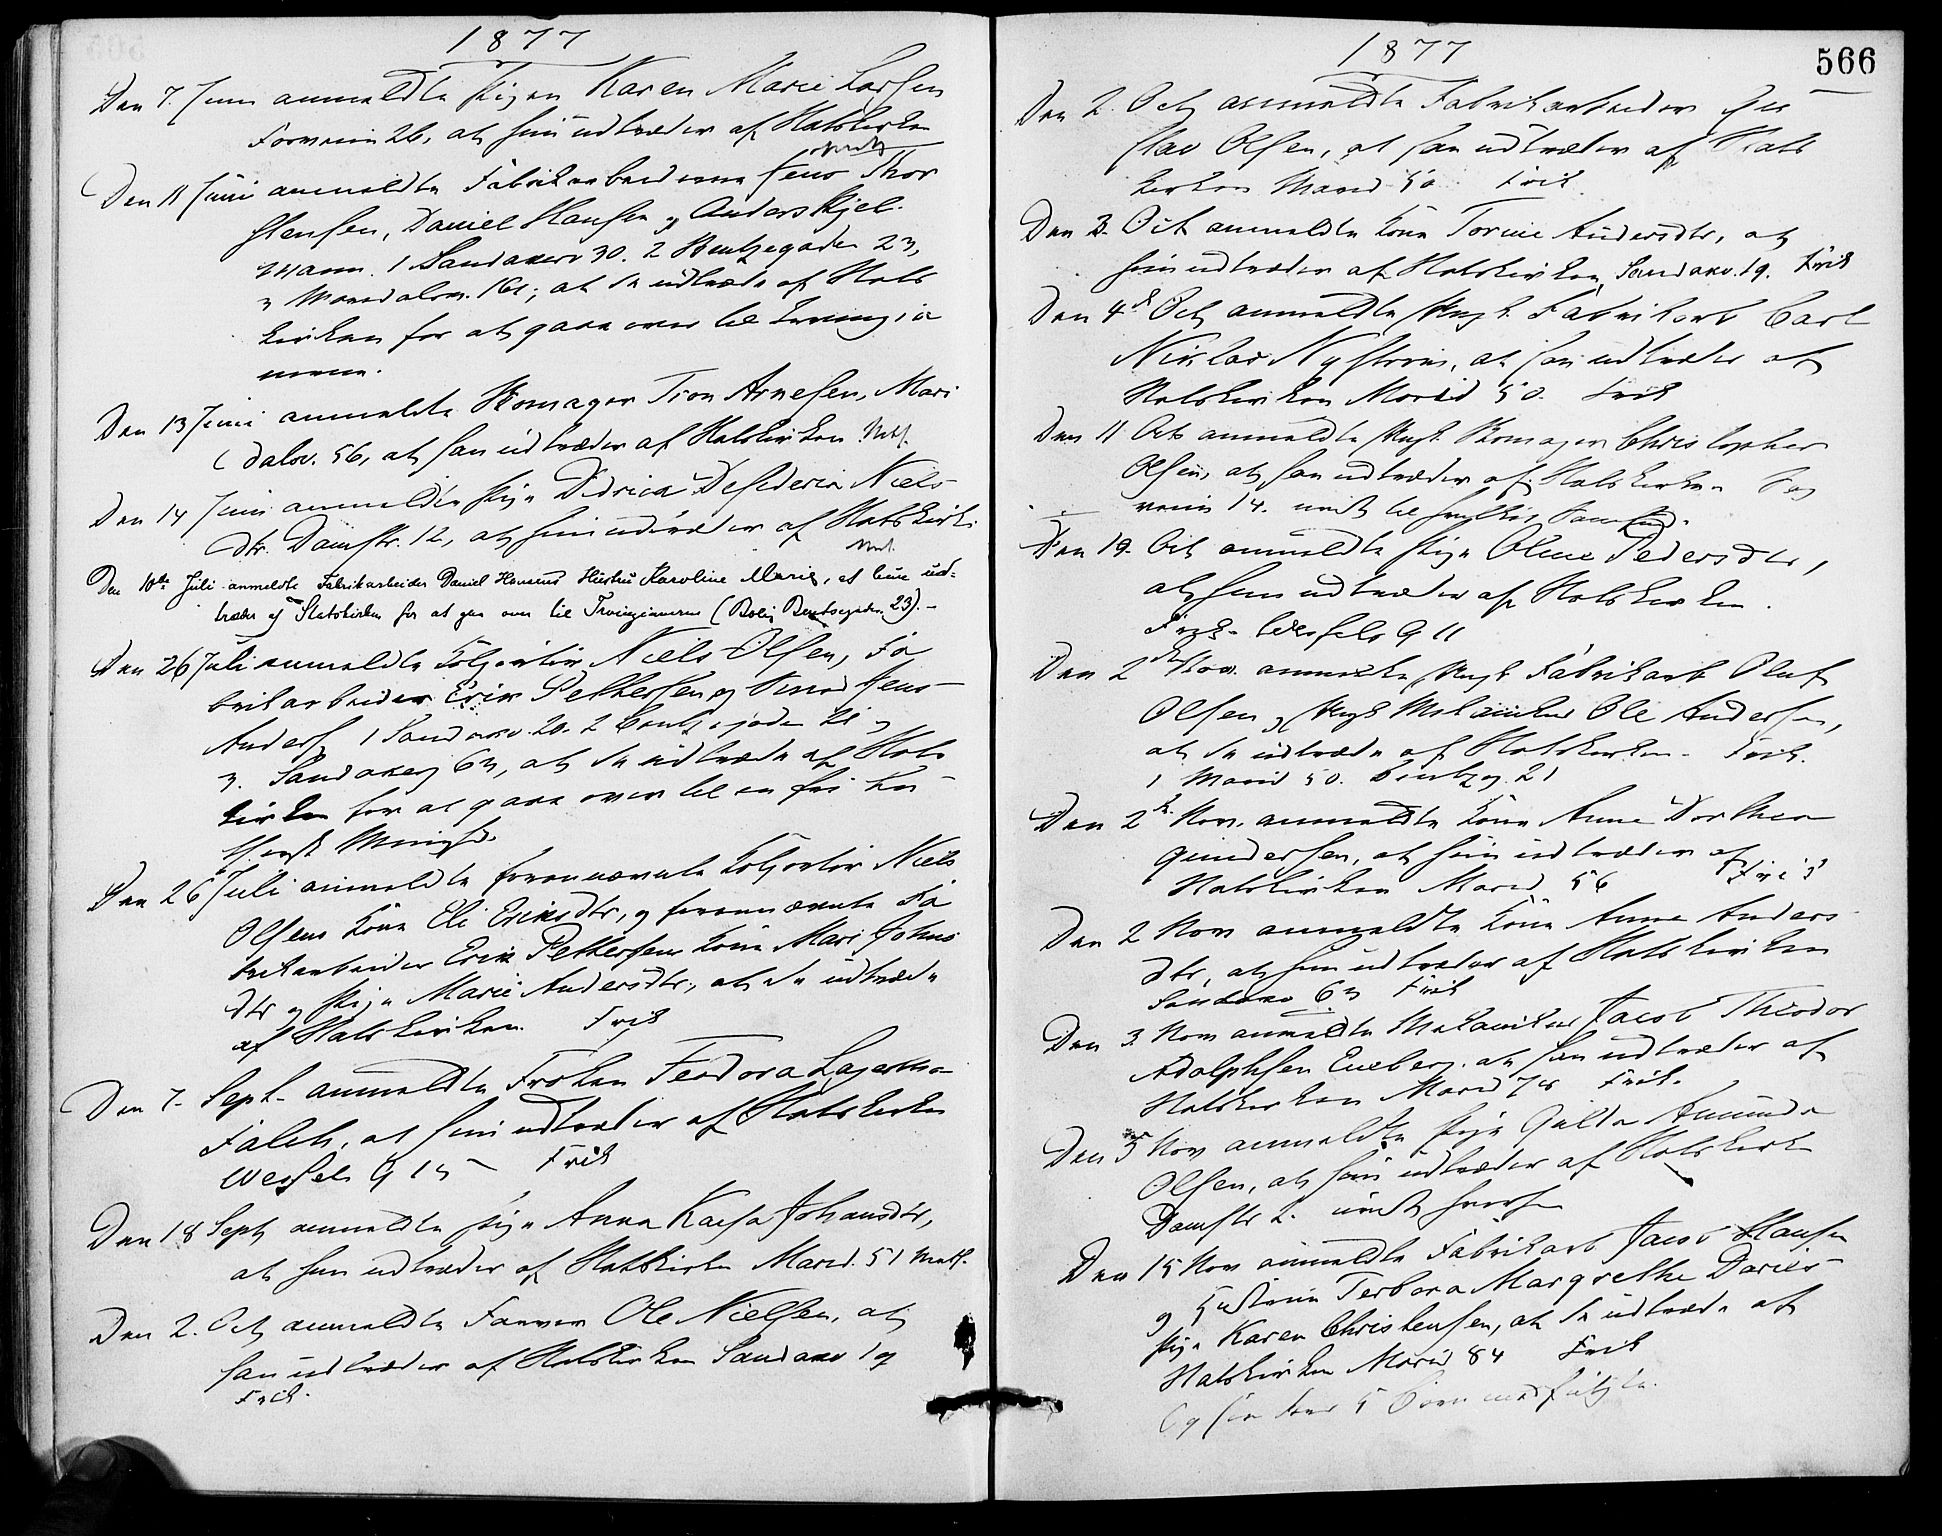 1877
Den 7. Juni anmeldte Pigen Karen Marie Larsen
Forveien 26, at hun udtræder af Statskirken
Den 11 Juni anmeldte Fabrikarbeiderne Jens Thor
stensen, Daniel Hansen og Anders Kjel-
mann. 1 Sandakerv 30. 2 Bentzegaden 23,
3 Maridalsv. 161; at de udtræde af Stats
kirken for at gaa over til Tvingia
nerne.
Den 13 Juni anmeldte Skomager Tron Arnesen, Mari
dalsv. 56, at han udtræder af Statskirken Meth.
Den 14 Juni anmeldte Pige Didrica Desideria Niels-
dtr. Damstr. 12, at hun udtræder af Statskirk.
Met.
Den 10de Juli anmeldte Fabrikarbeider Daniel Hansens Hustru Karoline Marie, at hun ud-
træder af Statskirken for at gaa over til Tvingianerne (Bolig Bentsegaden 23).-
Den 26 Juli anmeldte Kolportør Niels Olsen, Fa
brikarbeider Erik Pettersen og Smed Jens
Anders 1 Sandakv. 20. 2 Bentzegaden 21
3. Sandakerv 63, at de udtræde af Stats
kirken for at gaa over til en fri Lu
thersk Menighed.
Den 26 Juli anmeldte forannævnte Kolportør Niels
Olsens Kone Eli Eriksdtr, og forannævnte Fa
brikarbeider Erik Pettersens Kone Mari Johns
dtr og Pige Marie Andersdtr, at de udtræde
af Statskirken. Frik
Den 7. Sept. anmeldte Frøken Feodora Lagertha
Falch, at hun udtræder af Statskirken
Wessels G 15 Frik
Den 18 Sept anmeldte Pige Anna Kaisa Johansdtr,
at hun udtræder af Statskirken Marid. 51 Meth.
Den 2. Oct anmeldte Farver Ole Nielsen, at
han udtræder af Statskirken Sandakv 19
Frik.
1877
566
Den 2. Oct anmeldte Fabrikarbeider Gu
stav Olsen, at han udtræder af Stats
kirken Marid 50. Frik
Den 3. Oct anmeldte Kone Torine Andersdtr, at
hun udtræder af Statskirken, Sandakv. 19. Frik
Den 4de Oct anmeldte Ungk. Fabrikarb Carl
Niklas Nystrøm, at han udtræder af
Statskirken Marid 50. Frik
Den 11 Oct anmeldte Ungk. Skomager Christopher
Olsen, at han udtræder af Statskirken For
veien 14.
Den 19. Oct anmeldte Pige Oline Pedersdtr,
at hun udtræder af Statskirken.
Frik. Wessels G 11
Den 2den Nov. anmeldte Ungk Fabrikarb Oluf
Olsen og Ungk Mekaniker Ole Andersen,
at de udtræde af Statskirken. Frik.
1 Marid 50. Bentzeg. 21
Den 2den Nov. anmeldte Kone Anne Dorthea
Gundersen, at hun udtræder af
Statskirken Marid 56 Frik
Den 2 Nov anmeldte Kone Anne Anders
dtr, at hun udtræder af Statskirken
Sandakv 63 Frik
Den 3. Nov anmeldte Mekaniker Jacob Theodor
Adolphsen Eneberg. at han udtræder af
Statskirken Marid 78 Frik.
Den 5 Nov anmeldte Pige Gulda Amunda
Olsen, at hun udtræder af Statskirk
Damstr 2.
Den 15 Nov anmeldte Fabrikarb Jacob Hansen
og Hustru Terbora Margrethe Davids
Pige Karen Christensen, at de udtræde af
Statskirken Marid 84 Frik